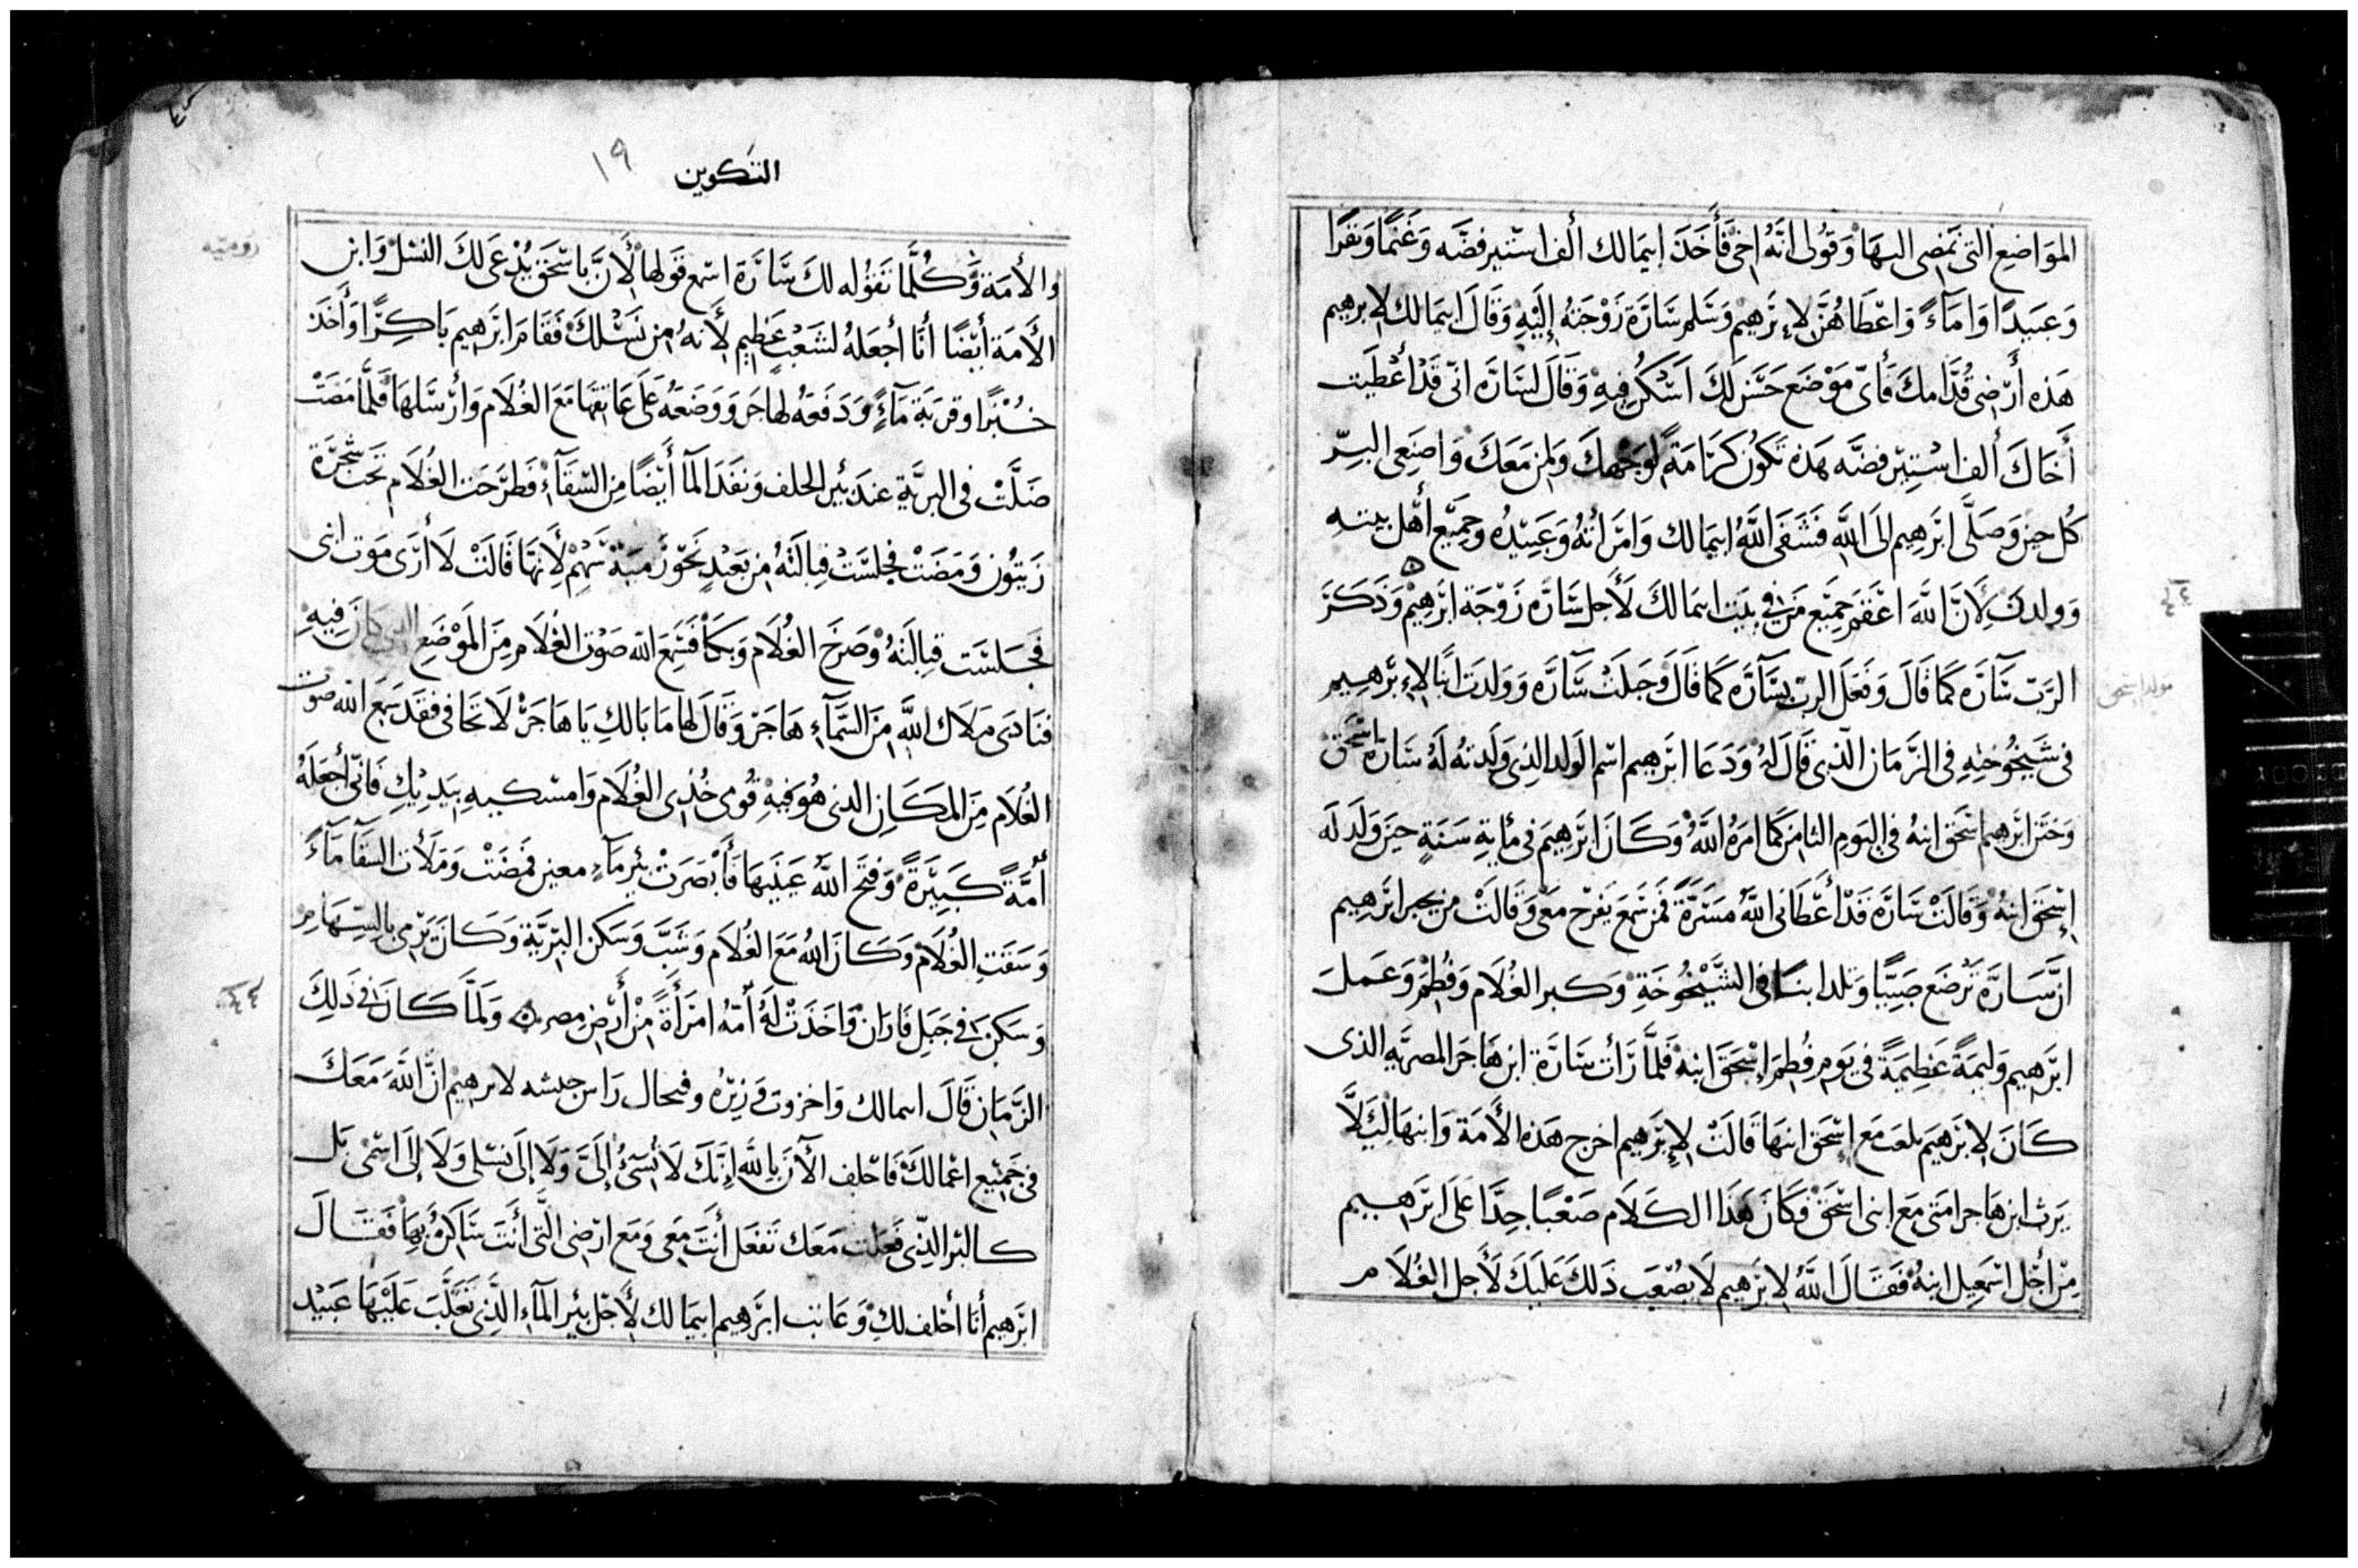 المَوَاضِعِ التى تمضى اليهَا وَقُولى انّهُ اخى فَأَخَذَ اِيمَالك ألف استير فضَّه وَغَنَمًا وَبَقرًا
وَعبيدًا وَامَآءً وَاعْطَاهُنَّ لإبرَهيم وَسَلم سَارَّة زَوْجَتهُ إليْهِ وَقَالَ ايمَالك لإبرهيم
هَذه أرْضِى قُدَّامكَ فَأىّ مَوْضَع حَسَن لَكَ اسْكُن فِيهِ وَقَالَ لسَارَّه انّى قَدْ أعْطَيت
أَخَاكَ ألف استير فضَّه هَذه تَكُون كَرَامَةً لوَجهكَ وَلمن مَعَكَ وَاصنَعى البرّ
كُل حِين وَصَلَّى ابرَهيم الَى اللَّهِ فَشَفَى اللَّهُ ايمَالك وَامرَأتهُ وَعَبيدُه وجميع أهْل بيته
وَولدنَ لأَنَّ اللَّهَ اعْقَمَ جميع مَن فى بَيت ايمَالكَ لأَجل سَارَّه زَوْجَة ابرَهيْم وَذَكَرَ
الرَّبّ سَآرَّه كَمَا قَالَ وَفَعَلَ الربّ بسَآرَّه كَمَا قَالَ وَحبَلَتْ سَآرَّه وَوَلدَت ابنًا لإبرَهيم
مولد اسحق
فى شَيخُوخَتِهِ فى الزَّمَان الّذِى قَالَ لهُ وَدَعَا ابرَهيم اسْم الوَلد الذِى وَلَدتهُ لَهُ سَارَّه اسْحَق
وَختَن ابرَهيم اسْحَق ابنهُ فى اليَوم الثامن كَما امَرَهُ اللَّهُ وَكَانَ ابرَهيمَ فى مأيةِ سَنَةٍ حينَ وَلَد لَه
إسْحَق ابنهُ وَقَالَتْ سَارَّة قَدْ أعْطَانى اللَّهُ مسَرَّةً فمَن سَمَع يَفرَح مَعى وَقَالَتْ من يخبر ابرَهِيم
انَّ سَارَّة تَرْضَع صَبيًّا وَتلد ابنًا فى الشَّيْخُوخَةِ وَكبر الغُلَام وَفُطِمَ وَعَملَ
ابرَهيم وَليمَةً عَظيمَةً فى يَوم فُطِمَ إسْحَق ابنهُ فَلَمَّا رَأت سَارَّة ابن هَاجَر المصريَّه الذى
كَانَ لإبرَهيمَ يلعَب مَعَ إسْحَق ابنهَا قَالَتْ لإبرَهيم اخرج هَذه الأَمَة وَابنهَا لئلَّا
يَرث ابن هَاجر امَتى مَعَ ابنى اسْحَقَ فَكَانَ هَذَا الكَلَام صَعْبًا جدًّا عَلَى ابرَهِيم
مِنْ أجْل اسْمَعيل ابنهُ فَقَالَ اللَّهُ لإبرَهيم لَا يصْعب ذَلكَ عَليَكَ لأَجل الغُلَام
التكوين ١٩
والأمَة وَكُلَّمَا تَقوُله لكَ سَّارَّة اسْمع قَولهَا لأَنَّ باسْحَق يُدْعَى لكَ النَّسْل وَابن
الأمَة أيْضًا أنَا أجعَلهُ لشَعْبٍ عَظِيم لأَنهُ من نَسْلكَ فَقَامَ ابرَهيم بَاكِرًا وَأَخَذَ
خُبْزًا وقربَة مَآءٍ وَدَفَعَهُ لهَاجَر وَوَضَعَهُ عَلَى عَاتقهَا مَعَ الغُلَام وَأرْسَلهَا فَلَمَّا مَضَتْ
ضَلَّتْ فى البريَّة عندَ بئر الحلف وَنفَدَ المَآ أَيضًا مِن السّقَآءِ فَطرَحَت الغُلَام تَحتَ شجرَة
زَيتُون وَمَضَتْ فجلسَتْ قبالَتهُ من بَعْيدٍ نَحَوْ رَميَة سَهْم لأَنهَا قَالَتْ لَا أرَى مَوت ابنى
فَجَلسَت قبالَتهُ وَصَرخَ الغُلَام وَبكَا فَسَمِعَ اللَّه صَوْت الغُلَام مِنَ المَوْضَع الذى كانَ فِيهِ
فنَادَى مَلَاك اللَّهِ مِنَ السَّمَآءِ هَاجَر وَقَالَ لهَا مَا بَالكِ يَا هَاجَرْ لَا تخَافى فقَد سَمَع اللَّه صوت
الغُلَام مِنَ المَكَانِ الذى هُوَ فيهِ قُومى خُذِى الغُلَام وَامسْكيهِ بيَديْكِ فَانّى أجعَلهُ
أُمَّةً كَبيَرةً وَفتح اللَّهُ عَينَيهَا فَأَبْصَرَتْ بئر مآءٍ معين فمَضَتْ وَمَلأت السقَآ مَآءً
وَسَقتِ الغُلَام وَكَانَ اللَّهُ مَعَ الغُلَام وَشَبَّ وَسَكَن البريَّة وَكَانَ يَرْمى بالسّهَامِ
وَسَكَن فى جَبَل فَارَان وَاخَذَتْ لَهُ أمّهُ امرَأةً مِنْ أَرْضِ مصر وَلَمَّا كَانَ فى ذَلِكَ
الزَّمَان قَالَ ايمالك وَاخزوت وَزيرُه وفيحال رَاس جيشه لابرهيم انَّ اللَّهَ مَعَكَ
فى جَميْع اعْمَالكَ فَاحْلِف الآنَ باللَّهِ إنَّكَ لَا تُسىءُ إلَىَّ وَلَا إلَى نسْلى وَلَا إلَى اسْمى بَل
كالبرّ الذِّى فَعَلت مَعَك تَفعَل أنَتَ مَعَى وَمَع ارْضى الَّتى أنَتَ سَاكنٌ بهَا فَقَالَ
ابرَهيم أنَا أحْلف لكِ وَعَاتب ابرَهيم ايمَالك لأَجْل بئر المَآء الَّذِى تَغَلَّبَ عَلَيْهَا عَبيْد